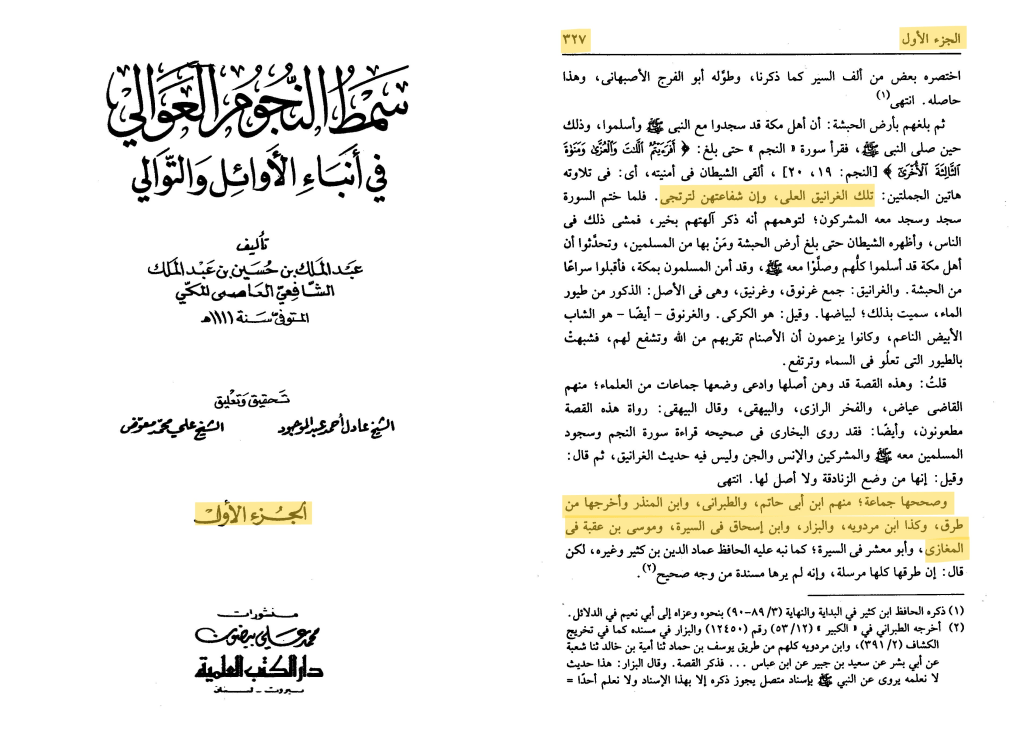 الجزء الأول
٣٢٧
اختصره بعض من ألف السير كما ذكرنا، وطوّله أبو الفرج الأصبهانى، وهذا
حاصله. انتهى(١)
ثم بلغهم بأرض الحبشة: أن أهل مكة قد سجدوا مع النبى ﷺ وأسلموا، وذلك
حين صلى النبى ﷺ، فقرأ سورة « النجم » حتى بلغ: ﴿ أَفَرَءَيْتُمُ ٱللَّٰتَ وَٱلْعُزَّىٰ وَمَنَوٰةَ
ٱلثَّالِثَةَ ٱلْأُخْرَىٰ ﴾ [النجم: ١٩، ٢٠] ، ألقى الشيطان فى أمنيته، أى: فى تلاوته
هاتين الجملتين: تلك الغرانيق العلى، وإن شفاعتهن لترتجى. فلما ختم السورة
سجد وسجد معه المشركون؛ لتوهمهم أنه ذكر آلهتهم بخير، فمشى ذلك فى
الناس، وأظهره الشيطان حتى بلغ أرض الحبشة ومَنْ بها من المسلمين، وتحدَّثوا أن
أهل مكة قد أسلموا كلُّهم وصلَّوْا معه ﷺ، وقد أمن المسلمون بمكة، فأقبلوا سراعًا
من الحبشة. والغرانيق: جمع غرنوق، وغرنيق، وهى فى الأصل: الذكور من طيور
الماء، سميت بذلك؛ لبياضها. وقيل: هو الكركى. والغرنوق – أيضًا – هو الشاب
الأبيض الناعم، وكانوا يزعمون أن الأصنام تقربهم من الله وتشفع لهم، فشبهتْ
بالطيور التى تعلُو فى السماء وترتفع.
قلتُ: وهذه القصة قد وهن أصلها وادعى وضعها جماعات من العلماء؛ منهم
القاضى عياض، والفخر الرازى، والبيهقى، وقال البيهقى: رواة هذه القصة
مطعونون، وأيضًا: فقد روى البخارى فى صحيحه قراءة سورة النجم وسجود
المسلمين معه ﷺ والمشركين والإنس والجن وليس فيه حديث الغرانيق، ثم قال:
وقيل: إنها من وضع الزنادقة ولا أصل لها. انتهى
وصححها جماعة؛ منهم ابن أبى حاتم، والطبرانى، وابن المنذر وأخرجها من
طرق، وكذا ابن مردويه، والبزار، وابن إسحاق فى السيرة، وموسى بن عقبة فى
المغازى، وأبو معشر فى السيرة؛ كما نبه عليه الحافظ عماد الدين بن كثير وغيره، لكن
قال: إن طرقها كلها مرسلة، وإنه لم يرها مسندة من وجه صحيح(٢).
(١) ذكره الحافظ ابن كثير في البداية والنهاية (٣/ ٨٩–٩٠) بنحوه وعزاه إلى أبي نعيم في الدلائل.
(٢) أخرجه الطبراني في « الكبير » (١٢/ ٥٣) رقم (١٢٤٥٠) والبزار في مسنده كما في تخريج
الكشاف (٢/ ٣٩١)، وابن مردويه كلهم من طريق يوسف بن حماد ثنا أمية بن خالد ثنا شعبة
عن أبي بشر عن سعيد بن جبير عن ابن عباس ... فذكر القصة. وقال البزار: هذا حديث
لا نعلمه يروى عن النبي ﷺ بإسناد متصل يجوز ذكره إلا بهذا الإسناد ولا نعلم أحدًا =
سمط النجوم العوالي
في أنباء الأوائل والتوالي
تأليف
عبد الملك بن حسين بن عبد الملك
الشافعي العاصمي المكي
المتوفى سنة ١١١١هـ
تحقيق وتعليق
الشيخ عادل أحمد عبد الموجود
الشيخ علي محمد معوض
الجزء الأول
منشورات
محمد علي بيضون
دار الكتب العلمية
بيروت - لبنان